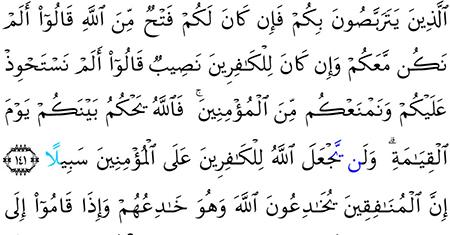 ٱلَّذِينَ يَتَرَبَّصُونَ بِكُمْ فَإِن كَانَ لَكُمْ فَتْحٌ مِّنَ ٱللَّهِ قَالُوٓا۟ أَلَمْ
نَكُن مَّعَكُمْ وَإِن كَانَ لِلْكَـٰفِرِينَ نَصِيبٌ قَالُوٓا۟ أَلَمْ نَسْتَحْوِذْ
عَلَيْكُمْ وَنَمْنَعْكُم مِّنَ ٱلْمُؤْمِنِينَ ۚ فَٱللَّهُ يَحْكُمُ بَيْنَكُمْ يَوْمَ
ٱلْقِيَـٰمَةِ ۗ وَلَن يَجْعَلَ ٱللَّهُ لِلْكَـٰفِرِينَ عَلَى ٱلْمُؤْمِنِينَ سَبِيلًا ﴿١٤١﴾
إِنَّ ٱلْمُنَـٰفِقِينَ يُخَـٰدِعُونَ ٱللَّهَ وَهُوَ خَـٰدِعُهُمْ وَإِذَا قَامُوٓا۟ إِلَى